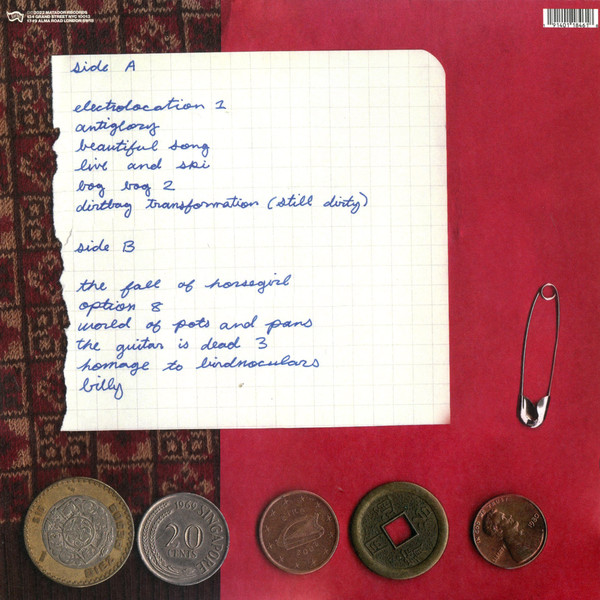 ©℗2022 MATADOR RECORDS
134 GRAND STREET NYC 10013
17-19 ALMA ROAD LONDON SW18
side A
electrolocation 1
antiglory
beautiful song
live and ski
bog bog 2
dirtbag transformation (still dirty)
side B
the fall of horsegirl
option 8
world of pots and pans
the guitar is dead 3
homage to birdnoculars
billy
1969 SINGAPORE
20
CENTS